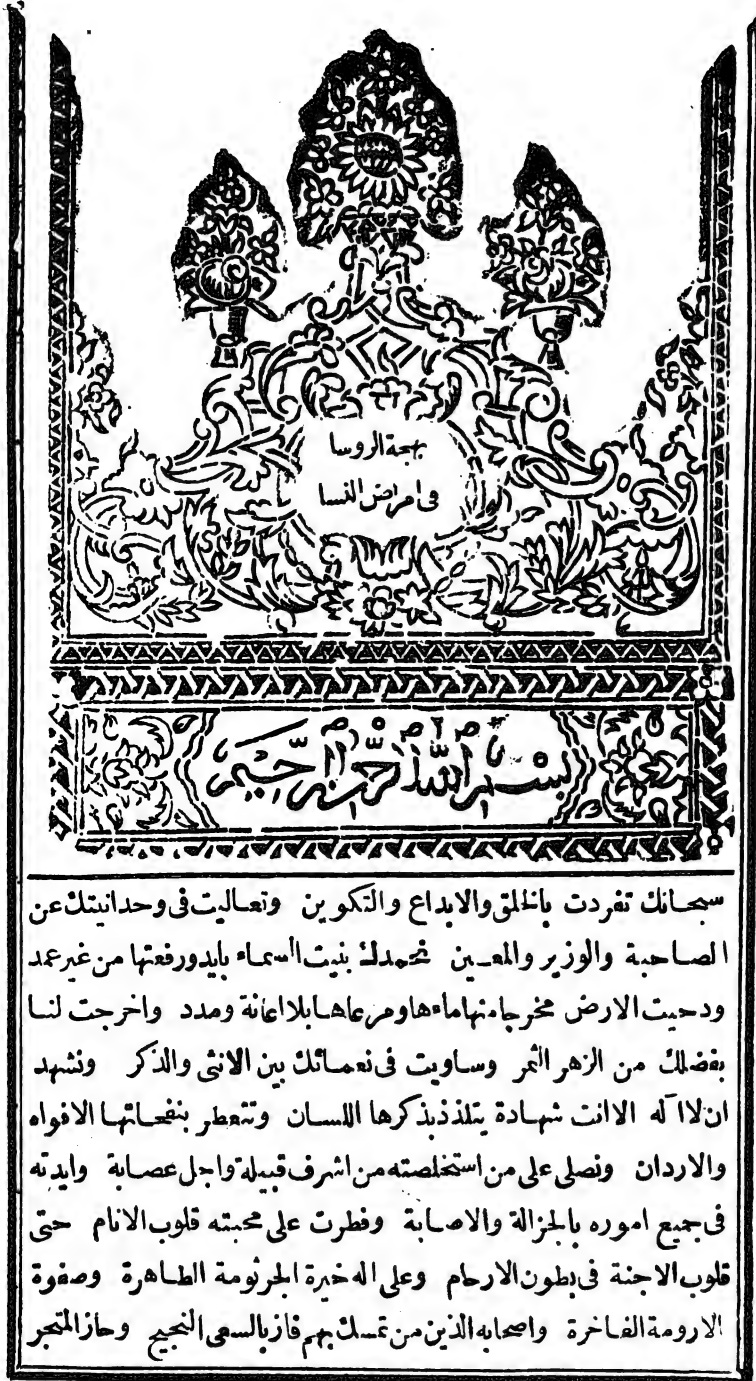 بهجة الروسا
فى امراض النسا
بسم الله الرحمن الرحيم
سبحانك تفردت بالخلق والابداع والتكوين وتعاليت فى وحدانيتك عن
الصاحبة والوزير والمعين نحمدك بنيت السماء بايد ورفعتها من غير عمد
ودحيت الارض مخرجا منها ماءها ومرعاها بلا اعانة ومدد واخرجت لنا
بفضلك من الزهر الثمر وساويت فى نعمائك بين الانثى والذكر ونشهد
ان لا اله الا انت شهادة يتلذذ بذكرها اللسان وتتعطر بنفحاتها الافواه
والاردان ونصلى على من استخلصته من اشرف قبيلة واجل عصابة وايدته
فى جميع اموره بالجزالة والاصابة وفطرت على محبته قلوب الانام حتى
قلوب الاجنة فى بطون الارحام وعلى اله خيرة الجرثومة الطاهرة وصفوة
الارومة الفاخرة واصحابه الذين من تمسك بهم فاز بالسعى النجيح وحاز المتجر